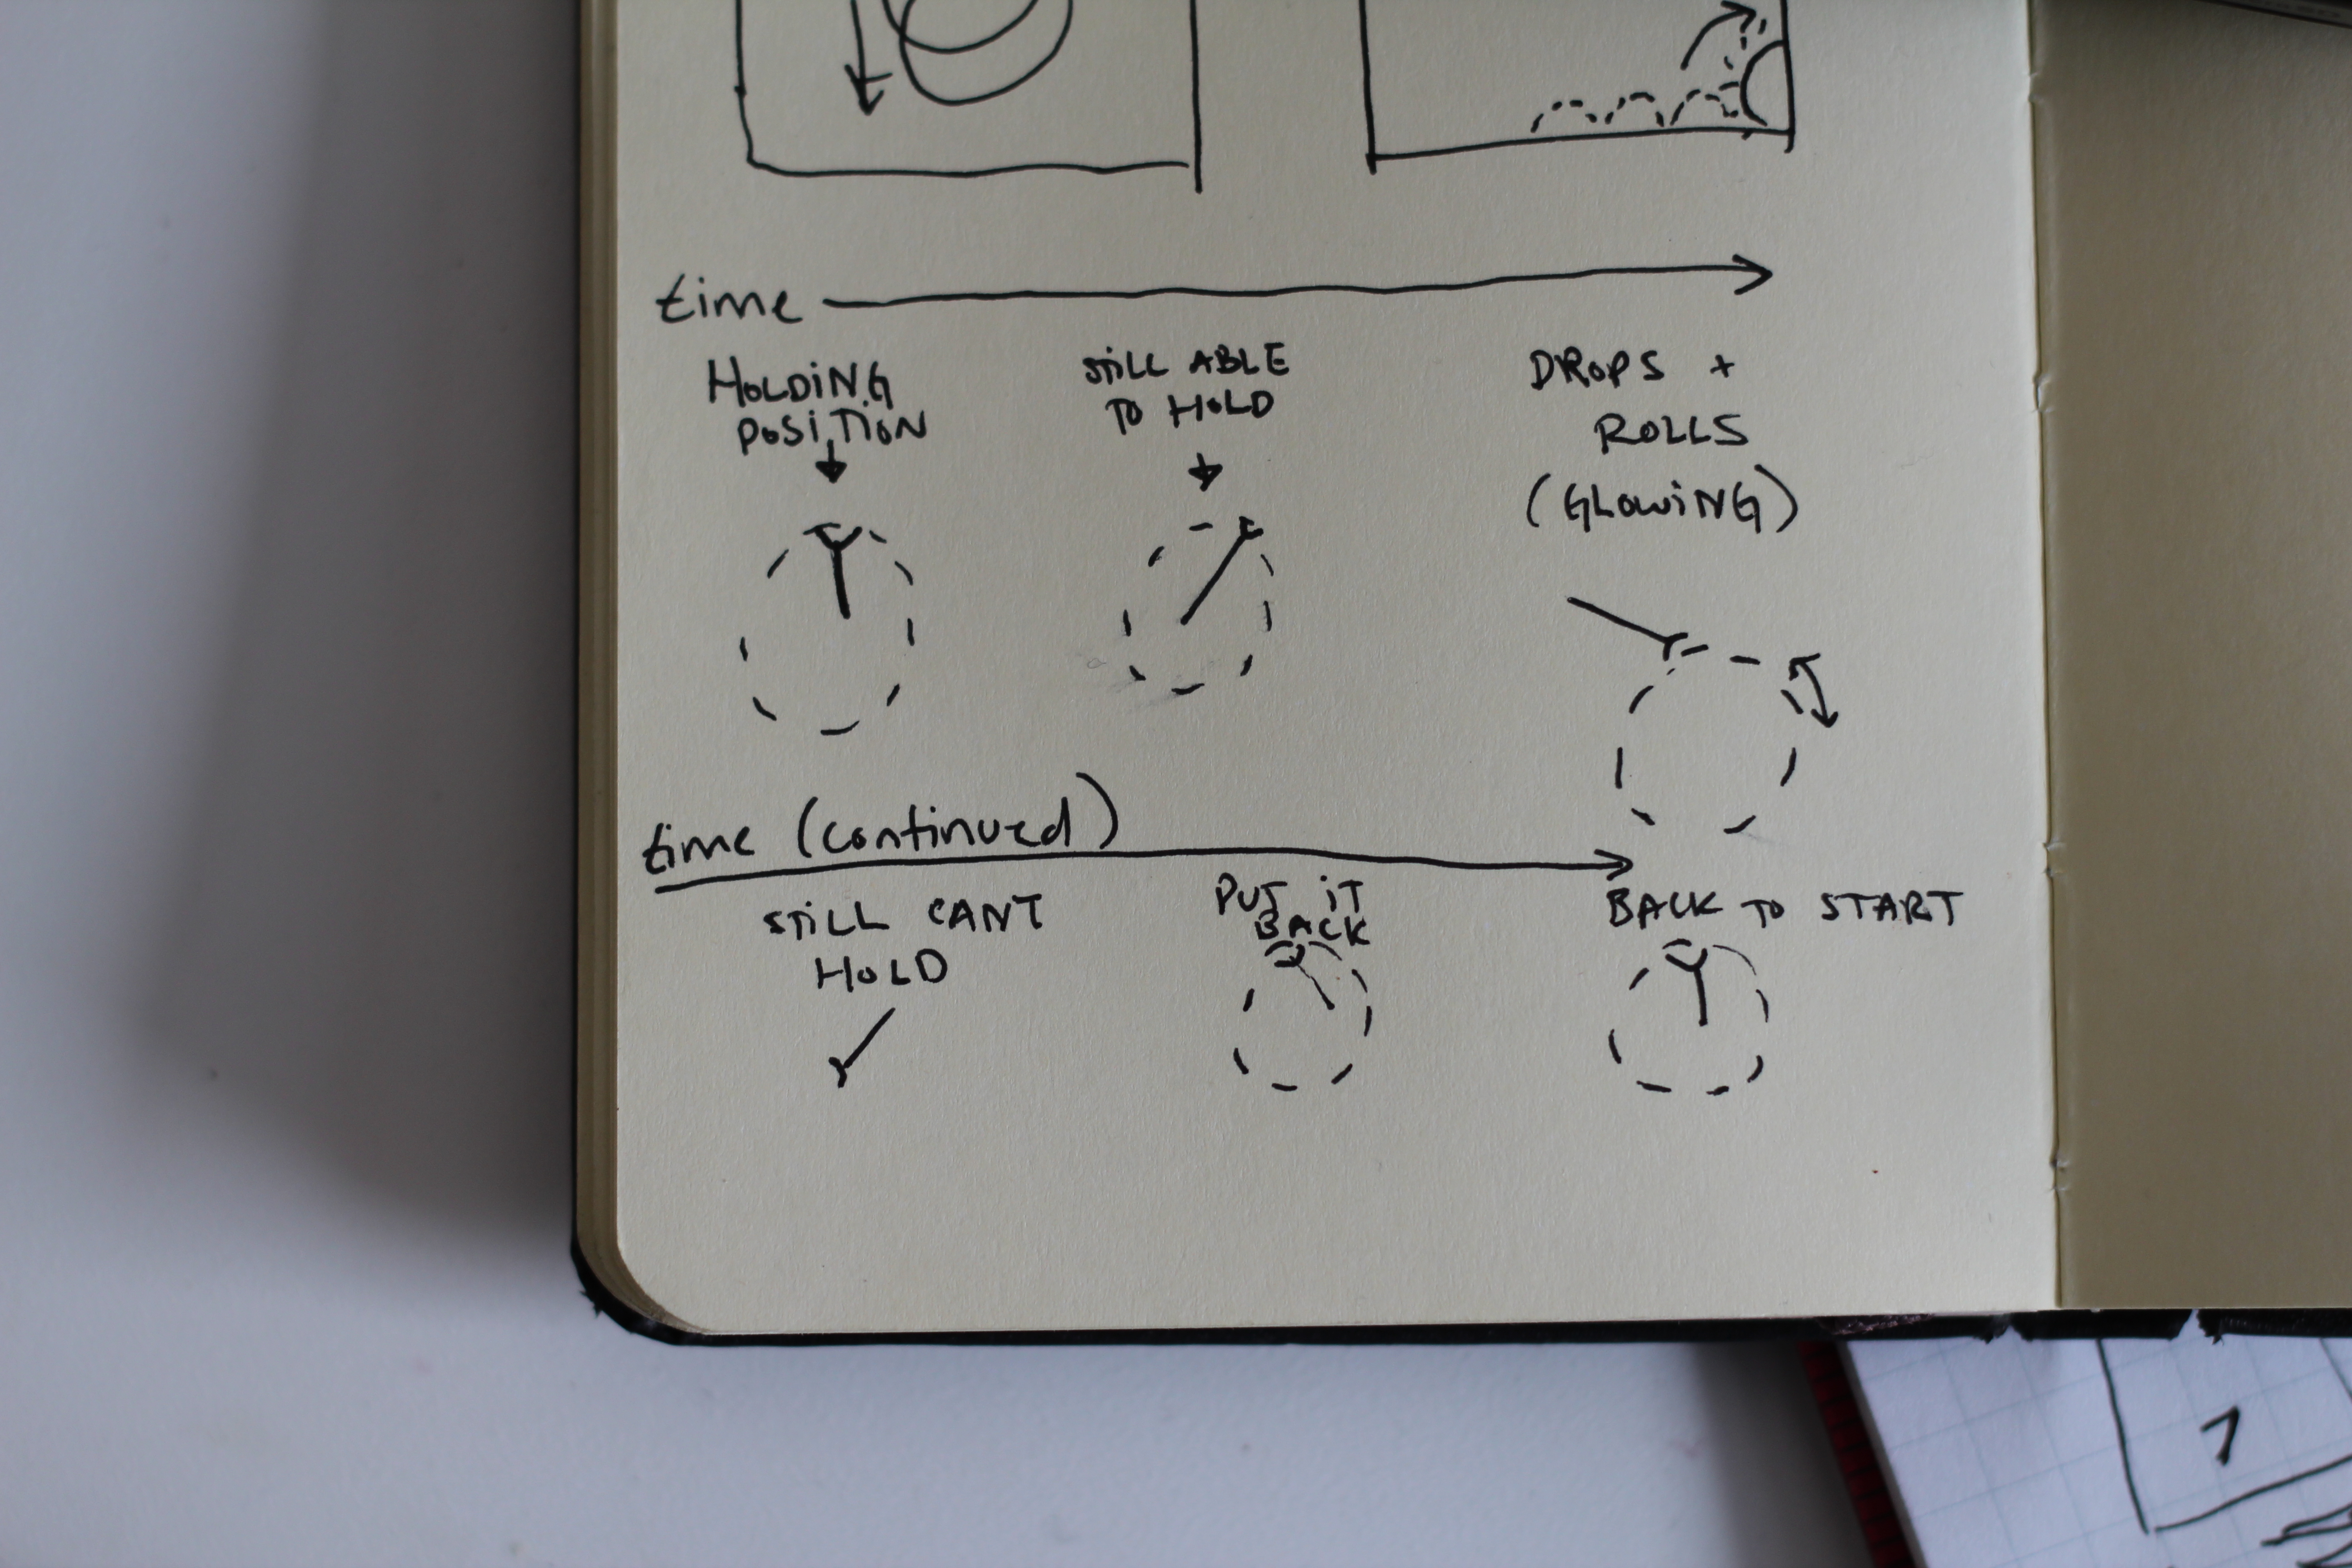 time
HOLDING
POSITION
STILL ABLE
TO HOLD
DROPS +
ROLLS
(GLOWING)
time (continued)
STILL CANT
HOLD
PUT IT
BACK
BACK TO START
1